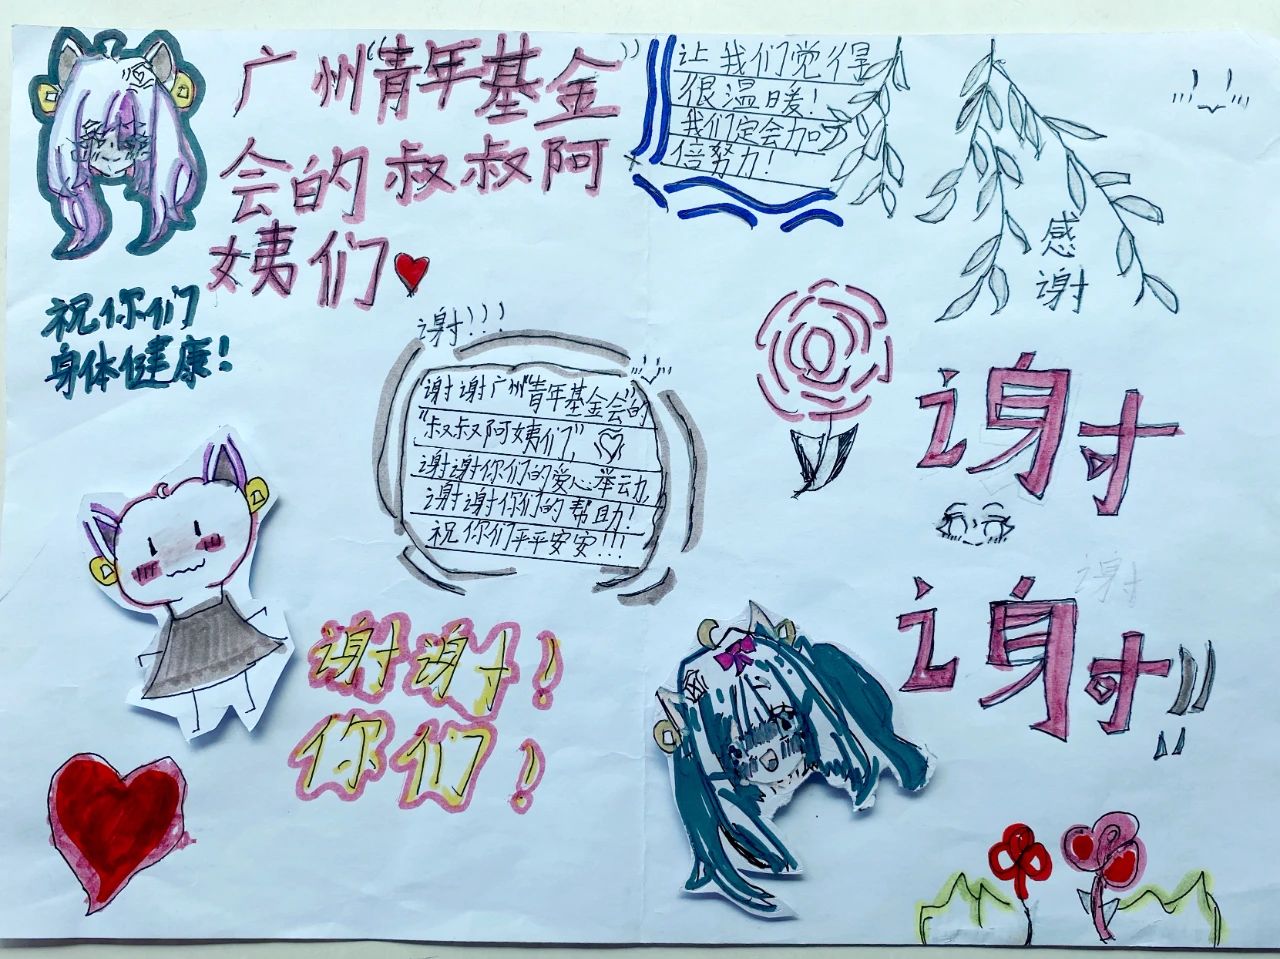 广州“青年基金”
会的叔叔阿
姨们
祝你们
身体健康！
让我们觉得
很温暖！
我们定会加
倍努力！
感
谢
谢!!!
谢谢广州“青年基金会”的
“叔叔阿姨们”
谢谢你们的爱心举动，
谢谢你们的帮助！
祝你们平平安安!!!
谢
谢
谢!!
谢谢！
你们！